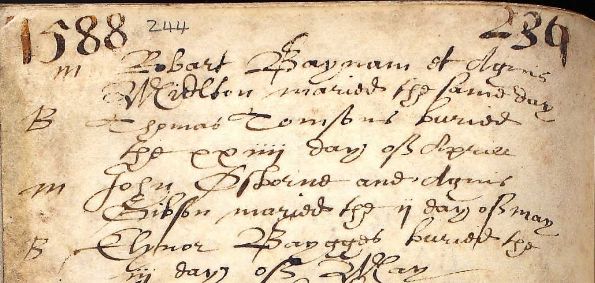 1588 244 239
m Robart Baynam et Agnis
Midlton maried the same day
B Thomas Tomsons buried
the xxiiij day off Aprill
m John Osborne and Agnis
Gibson maried the ij day off may
B Elynor Baygges buried the
iij day off May